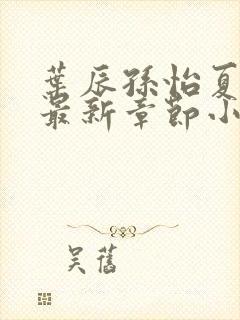 葉辰孫怡夏
最新章節小
吴舊